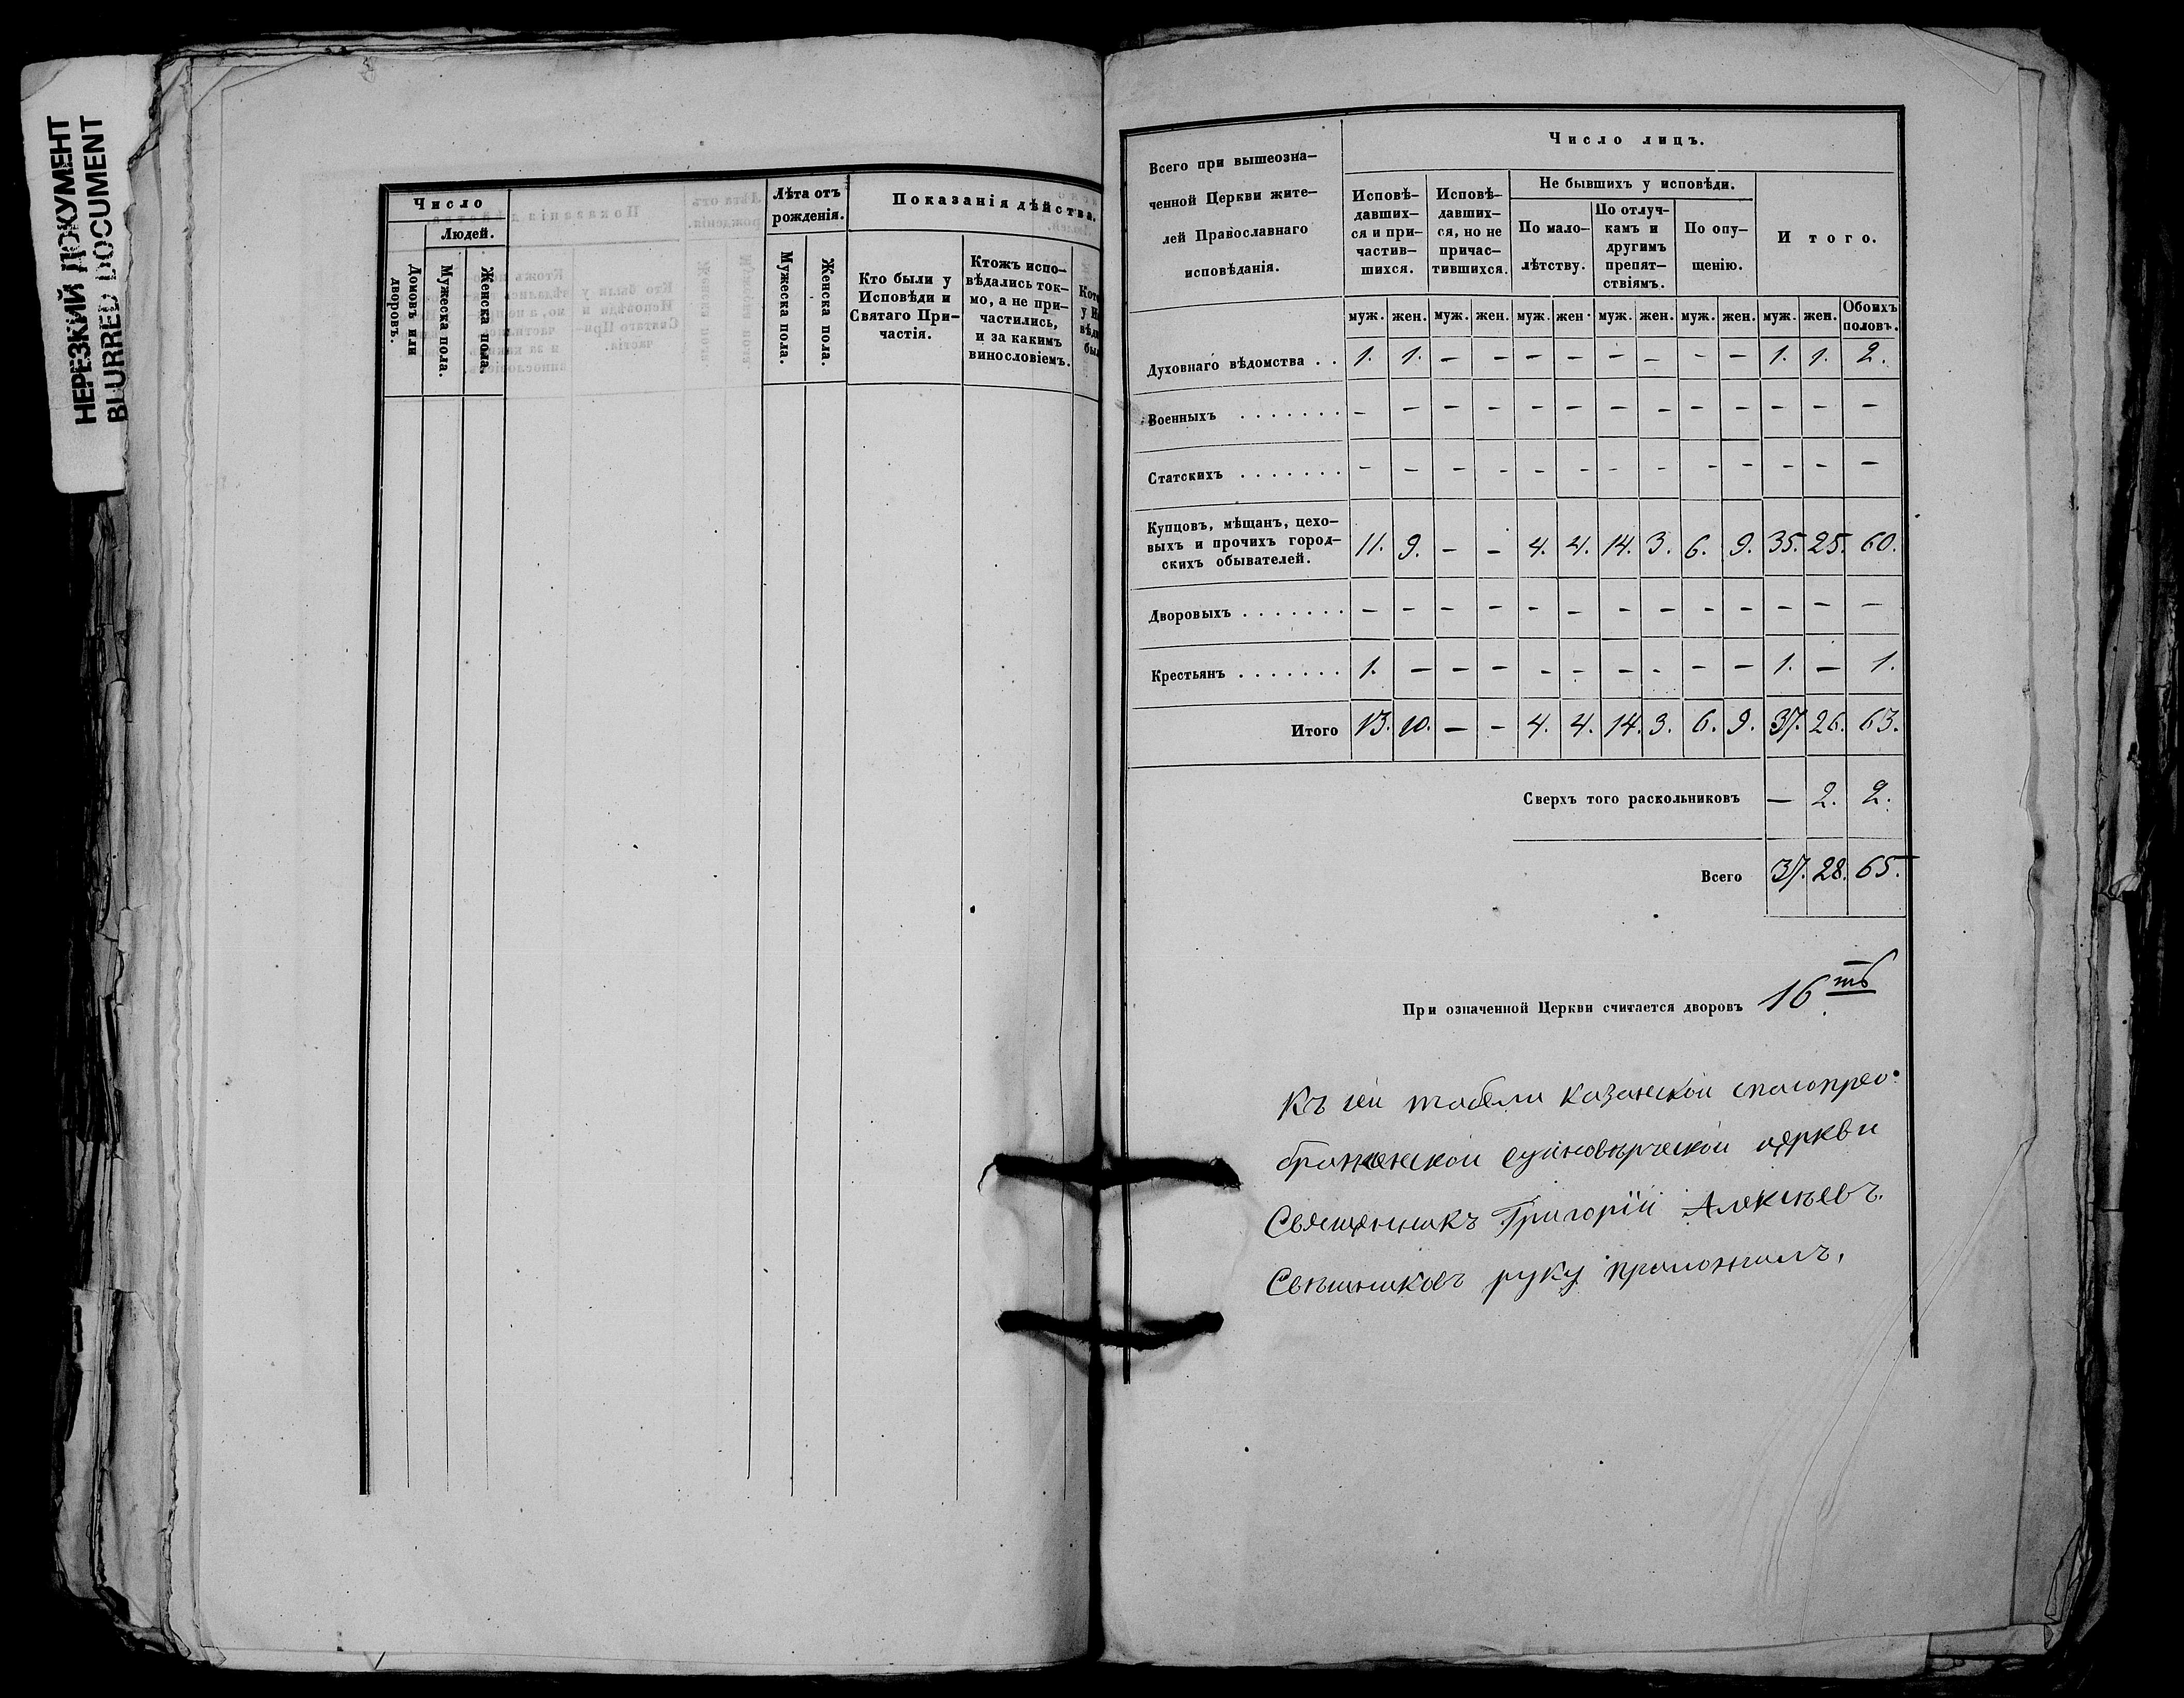 НЕРЕЗКИЙ ДОКУМЕНТ
BLURRED DOCUMENT
Число
Людей.
Домовъ или дворовъ.
Мужеска пола.
Женска пола.
Лѣта отъ рожденія.
Мужеска пола.
Женска пола.
Показанія дѣйства.
Кто были у
Исповѣди и
Святаго При-
частія.
Ктожъ испо-
вѣдались ток-
мо, а не при-
частились,
и за какимъ
винословіемъ.
Всего при вышеозна-
ченной Церкви жите-
лей Православнаго
исповѣданія.
Число лицъ.
Исповѣ-
давших-
ся и при-
частив-
шихся.
Исповѣ-
давших-
ся, но не
причас-
тившихся.
Не бывшихъ у исповѣди.
По мало-
лѣтству.
По отлуч-
камъ и
другимъ
препят-
ствіямъ.
По опу-
щенію.
Итого.
муж. жен. муж. жен. муж. жен. муж. жен. муж. жен. муж. жен. Обоихъ половъ.
Духовнаго вѣдомства . . 1. 1. – – – – – – – – 1. 1. 2.
Военныхъ . . . . . . . – – – – – – – – – – – – –
Статскихъ . . . . . . . – – – – – – – – – – – – –
Купцовъ, мѣщанъ, цехо-
выхъ и прочихъ город-
скихъ обывателей. 11. 9. – – 4. 4. 14. 3. 6. 9. 35. 25. 60.
Дворовыхъ . . . . . . . – – – – – – – – – – – – –
Крестьянъ . . . . . . . 1. – – – – – – – – – 1. – 1.
Итого 13. 10. – – 4. 4. 14. 3. 6. 9. 37. 26. 63.
Сверхъ того раскольниковъ – 2. 2.
Всего 37. 28. 65.
При означенной Церкви считается дворовъ 16ть
Къ сей табели Казанской спасопрео-
браженской единовѣрческой церкви
Священникъ Григорій Алексѣевъ
Свѣшниковъ руку приложилъ.